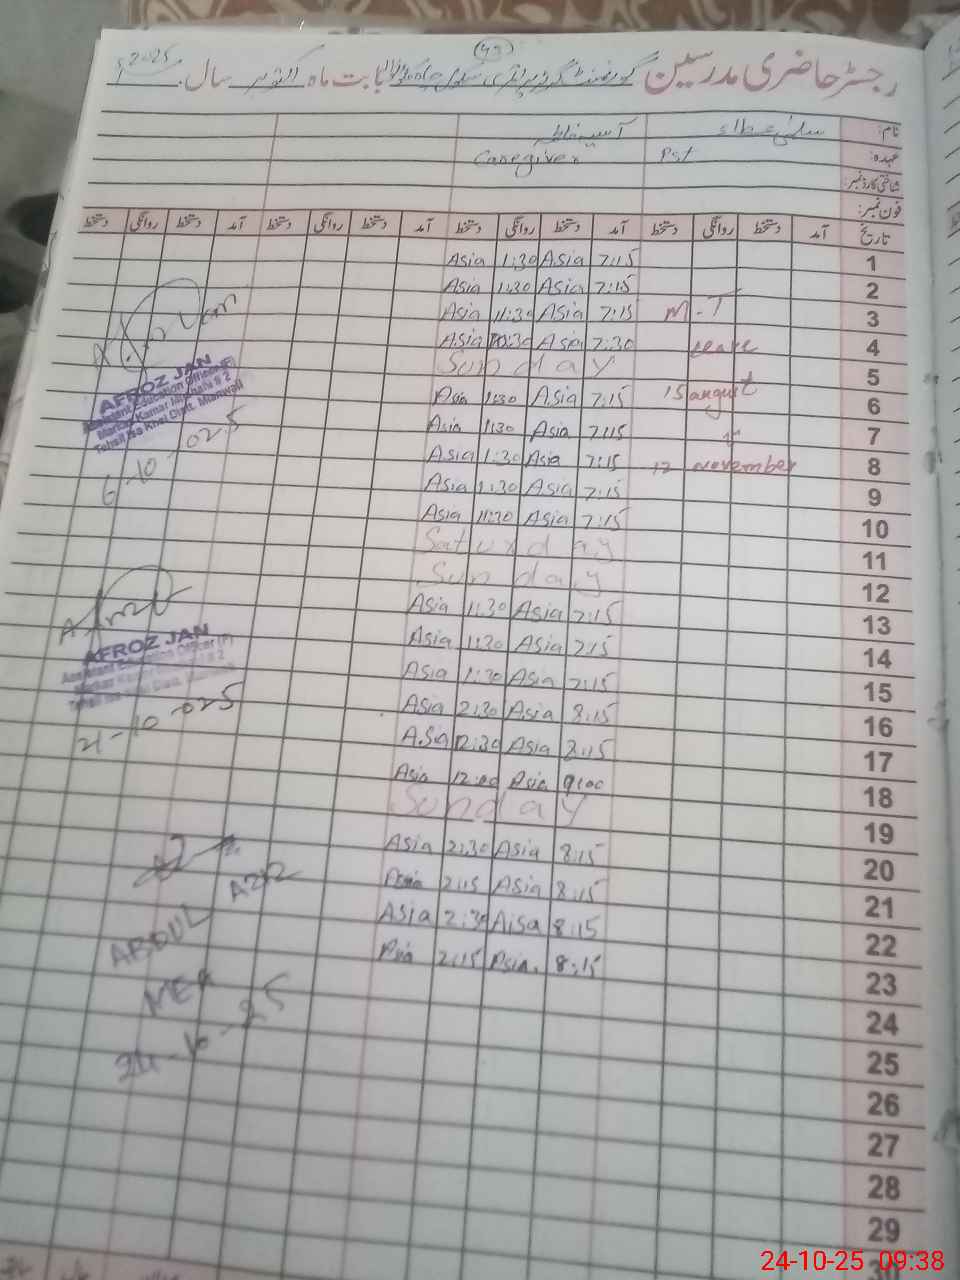 43
رجسٹر حاضری مدرسین گورنمنٹ گرلز پرائمری سکول بابت ماہ اکتوبر سال 2025
نام: سلمیٰ عطاء آسیہ
عہدہ: Pst Caregiver
شناختی کارڈ نمبر:
فون نمبر:
تاریخ آمد دستخط روانگی دستخط آمد دستخط روانگی دستخط آمد دستخط روانگی دستخط آمد دستخط روانگی دستخط
1 7:15 Asia 1:30 Asia
2 7:15 Asia 1:30 Asia
3 M-T 7:15 Asia 11:30 Asia
4 leave 7:30 Asia 10:30 Asia
5 Sunday
6 15 august 7:15 Asia 1:30 Asia
7 to 7:15 Asia 1:30 Asia
8 12 November 7:15 Asia 1:30 Asia
9 7:15 Asia 1:30 Asia
10 7:15 Asia 11:30 Asia
11 Saturday
12 Sunday
13 7:15 Asia 1:30 Asia
14 7:15 Asia 1:30 Asia
15 7:15 Asia 1:30 Asia
16 8:15 Asia 2:30 Asia
17 8:15 Asia 12:30 Asia
18 9:00 Asia 12:00 Asia
19 Sunday
20 8:15 Asia 2:30 Asia
21 8:15 Asia 2:15 Asia
22 8:15 Aisa 2:30 Asia
23 8:15 Asia 2:15 Asia
24
25
26
27
28
29
30
AFROZ JAN
Assistant Education Officer (F)
Markaz Kamar Mushani # 2
Tehsil Isa Khel Distt. Mianwali
6-10-025
AFROZ JAN
Assistant Education Officer (F)
Markaz Kamar Mushani # 2
Tehsil Isa Khel Distt. Mianwali
21-10-025
ABDUL AZIZ
MEA
24-10-25
24-10-25 09:38